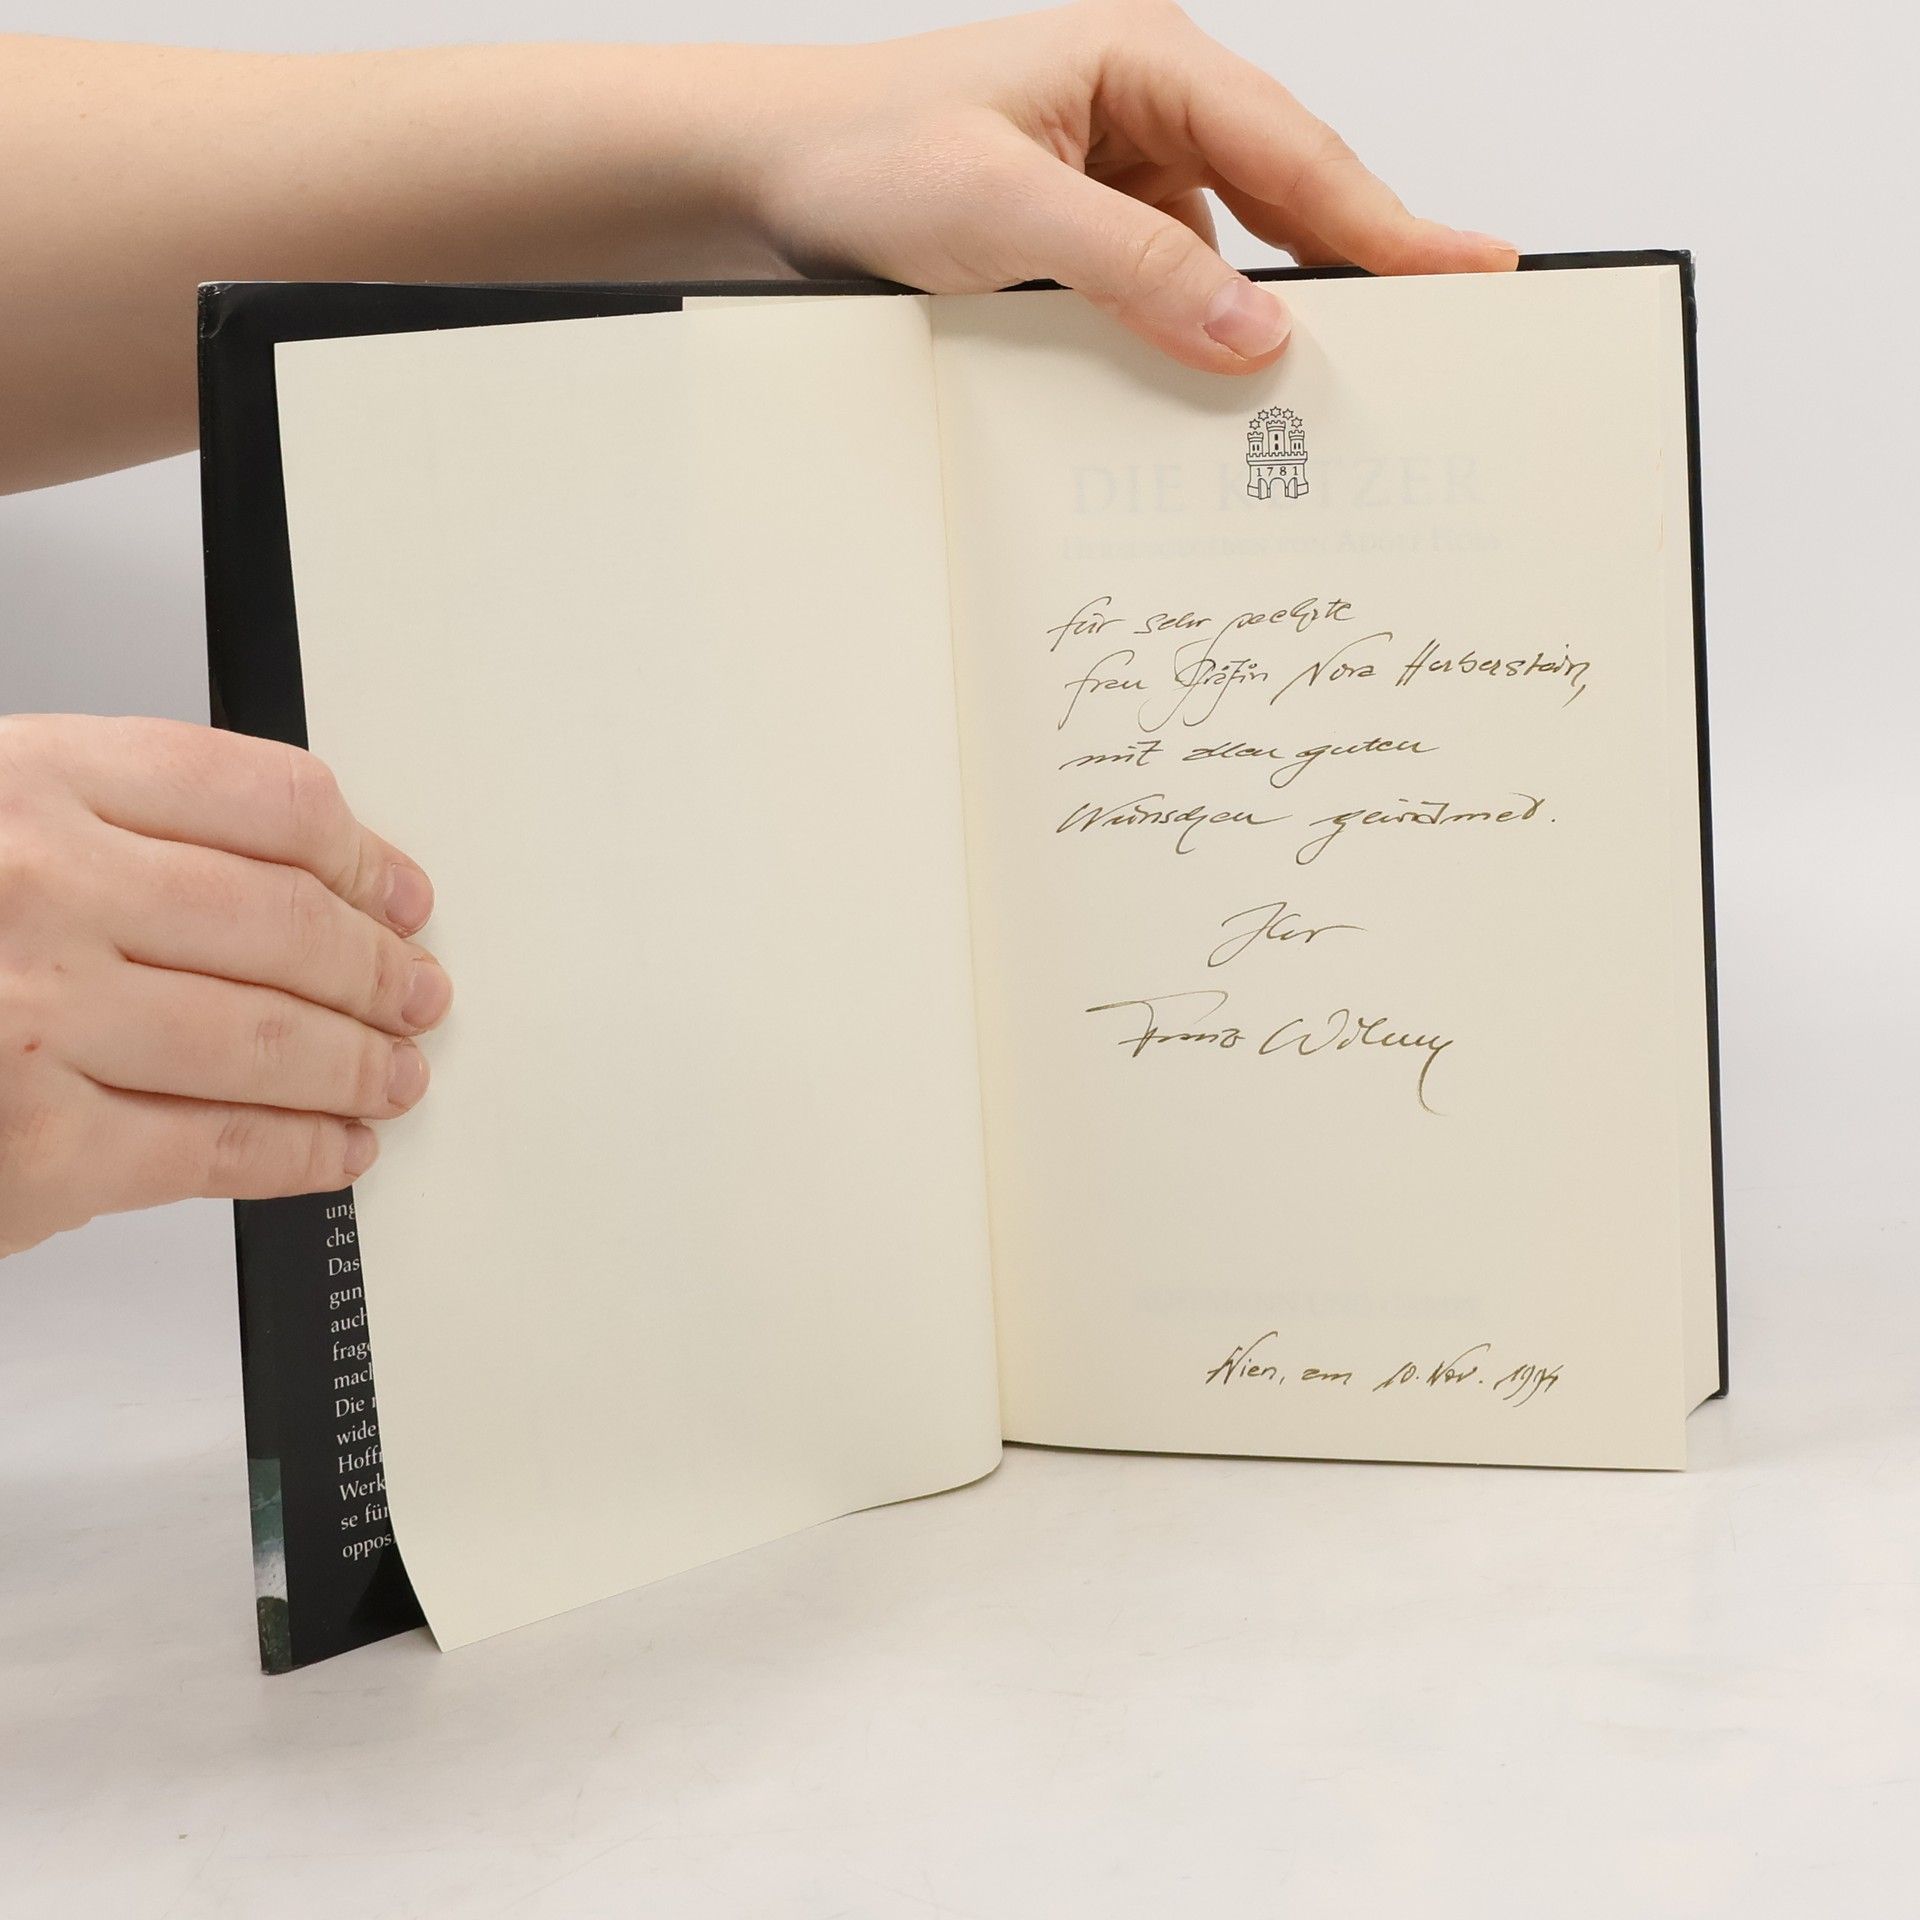 ung
che
Das
gun
auch
frage
mach
Die
wide
Hoff
Werk
se für
oppos
1781
DIE KETZER
HERAUSGEGEBEN VON ADOLF HOLL
für sehr geehrte
Frau Gräfin Nora Herberstein,
mit allen guten
Wünschen gewidmet.
Ihr
Wien, am 10. Nov. 1994